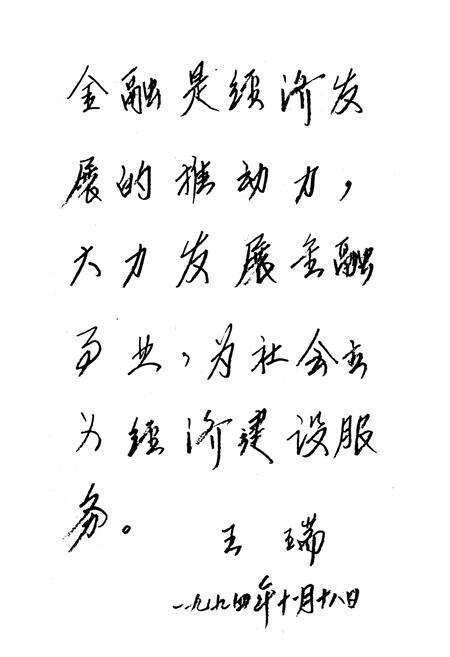 金融是经济发
展的推动力，
大力发展金融
事业，为社会主
义经济建设服
务。
王瑞
一九九四年十一月十八日